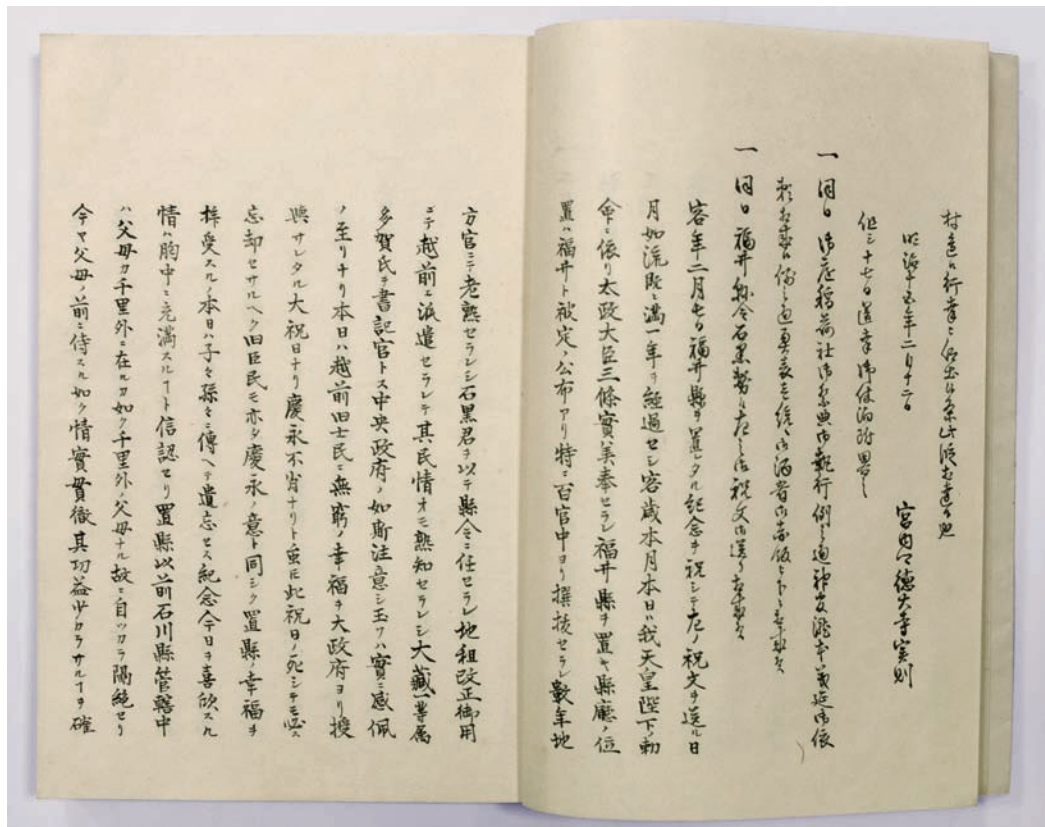 村違江行幸被仰出候条此段相達候也
明治十五年二月十二日
宮内卿徳大寺実則
但シ十七日還幸御休泊附略之
一同日御庭稲荷社御祭典御執行例之通神官
一同日福井県令石黒務江左之御祝文御送り
客年二月七日福井縣ヲ置レタル紀念ヲ祝シテ左ノ祝文ヲ送ル日
月如流既ニ満一年ヲ経過セシ客歳本月本日ハ我天皇陛下ノ勅
命ニ依リ太政大臣三條實美奉セラレ福井縣ヲ置キ縣廳ノ位
置ハ福井ト被定ノ公布アリ特ニ百官中ヨリ撰抜セラレ數年地
方官ニテ老熟セラレシ石黒君ヲ以テ縣令ニ任セラレ地租改正御用
ニテ越前ヱ派遣セラレテ其民情オモ熟知セラレシ大藏一等属
多賀氏ヲ書記官トス中央政府ノ如斯注意シ玉フハ實ニ感佩
ノ至リナリ本日ハ越前旧士民ニ無窮ノ幸福ヲ大政府ヨリ授
與サレタル大祝日ナリ慶永不肖ナリト虽𪜈此祝日ノ死シテモ必ス
忘却セサルヘク旧臣民モ亦タ慶永ノ意ト同シク置縣ノ幸福ヲ
拝受スルノ本日ハ子々孫々ニ傳ヘテ遺忘セス紀念今日ヲ喜欣スル
情ハ胸中ニ充満スルヿト信認セリ置縣以前石川縣管轄中
ハ父母カ千里外ニ在ルカ如ク千里外ノ父母ナル故ニ自ツカラ隔絶セリ
今ヤ父母ノ前ニ侍スル如ク情實貫徹其功益少カラサルヿヲ確